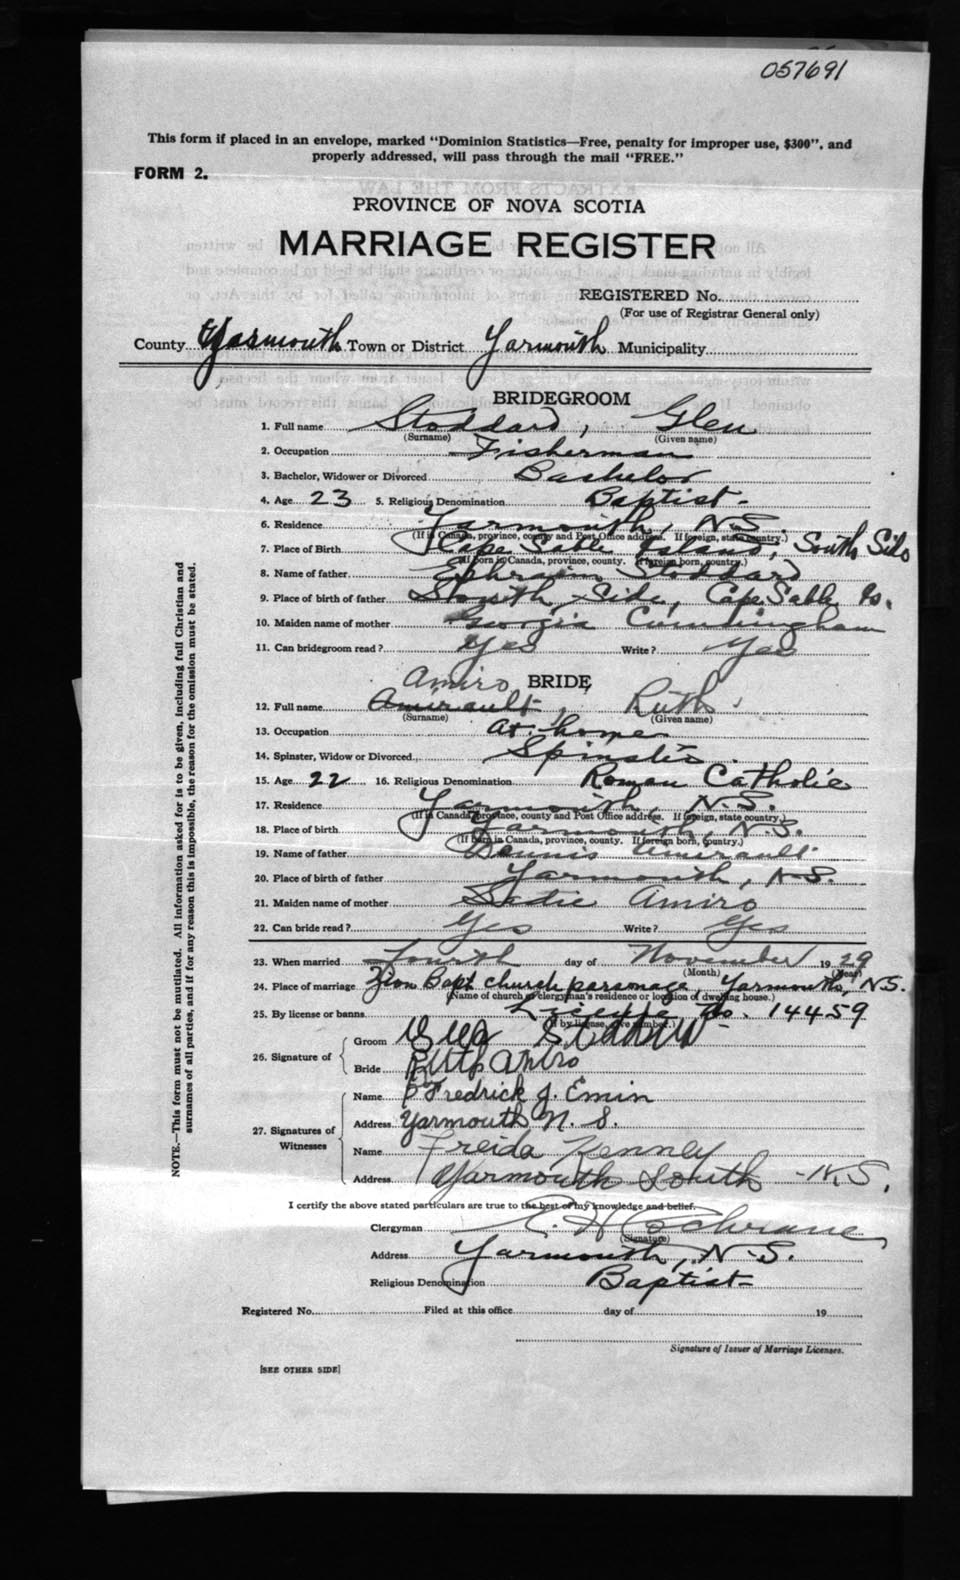 057691
This form if placed in an envelope, marked "Dominion Statistics—Free, penalty for improper use, $300", and
properly addressed, will pass through the mail "FREE."
FORM 2.
PROVINCE OF NOVA SCOTIA
MARRIAGE REGISTER
REGISTERED No.
(For use of Registrar General only)
County Yarmouth Town or District Yarmouth Municipality
BRIDEGROOM
1. Full name Stoddard, Glen
(Surname) (Given name)
2. Occupation Fisherman
3. Bachelor, Widower or Divorced Bachelor
4. Age 23 5. Religious Denomination Baptist
6. Residence Yarmouth, N.S.
(If in Canada, province, county and Post Office address. If foreign, state country.)
7. Place of Birth Cape Sable Island, South Side
(If born in Canada, province, county. If foreign born, country.)
8. Name of father Ephraim Stoddard
9. Place of birth of father South Side, Cape Sable Is.
10. Maiden name of mother Georgia Cunningham
11. Can bridegroom read? Yes Write? Yes
Amiro BRIDE
12. Full name Amirault, Ruth
(Surname) (Given name)
13. Occupation At home
14. Spinster, Widow or Divorced Spinster
15. Age 22 16. Religious Denomination Roman Catholic
17. Residence Yarmouth, N.S.
(If in Canada, province, county and Post Office address. If foreign, state country.)
18. Place of birth Yarmouth, N.S.
(If born in Canada, province, county. If foreign born, country.)
19. Name of father Dennis Amirault
20. Place of birth of father Yarmouth, N.S.
21. Maiden name of mother Sadie Amiro
22. Can bride read? Yes Write? Yes
23. When married Fourth day of November 1929
(Month) (Year)
24. Place of marriage Zion Bapt church parsonage, Yarmouth, N.S.
(Name of church or clergyman's residence or location of dwelling house.)
25. By license or banns License No. 14459
(If by license, give number.)
26. Signature of
Groom Glen Stoddard
Bride Ruth Amiro
27. Signatures of Witnesses
Name Fredrick J. Emin
Address Yarmouth N. S.
Name Freida Kenney
Address Yarmouth South N.S.
I certify the above stated particulars are true to the best of my knowledge and belief.
Clergyman E. H. Cochrane
(Signature)
Address Yarmouth, N.S.
Religious Denomination Baptist
Registered No. Filed at this office day of 19
Signature of Issuer of Marriage Licenses.
[SEE OTHER SIDE]
NOTE.—This form must not be mutilated. All information asked for is to be given, including full Christian and
surnames of all parties, and if for any reason this is impossible, the reason for the omission must be stated.